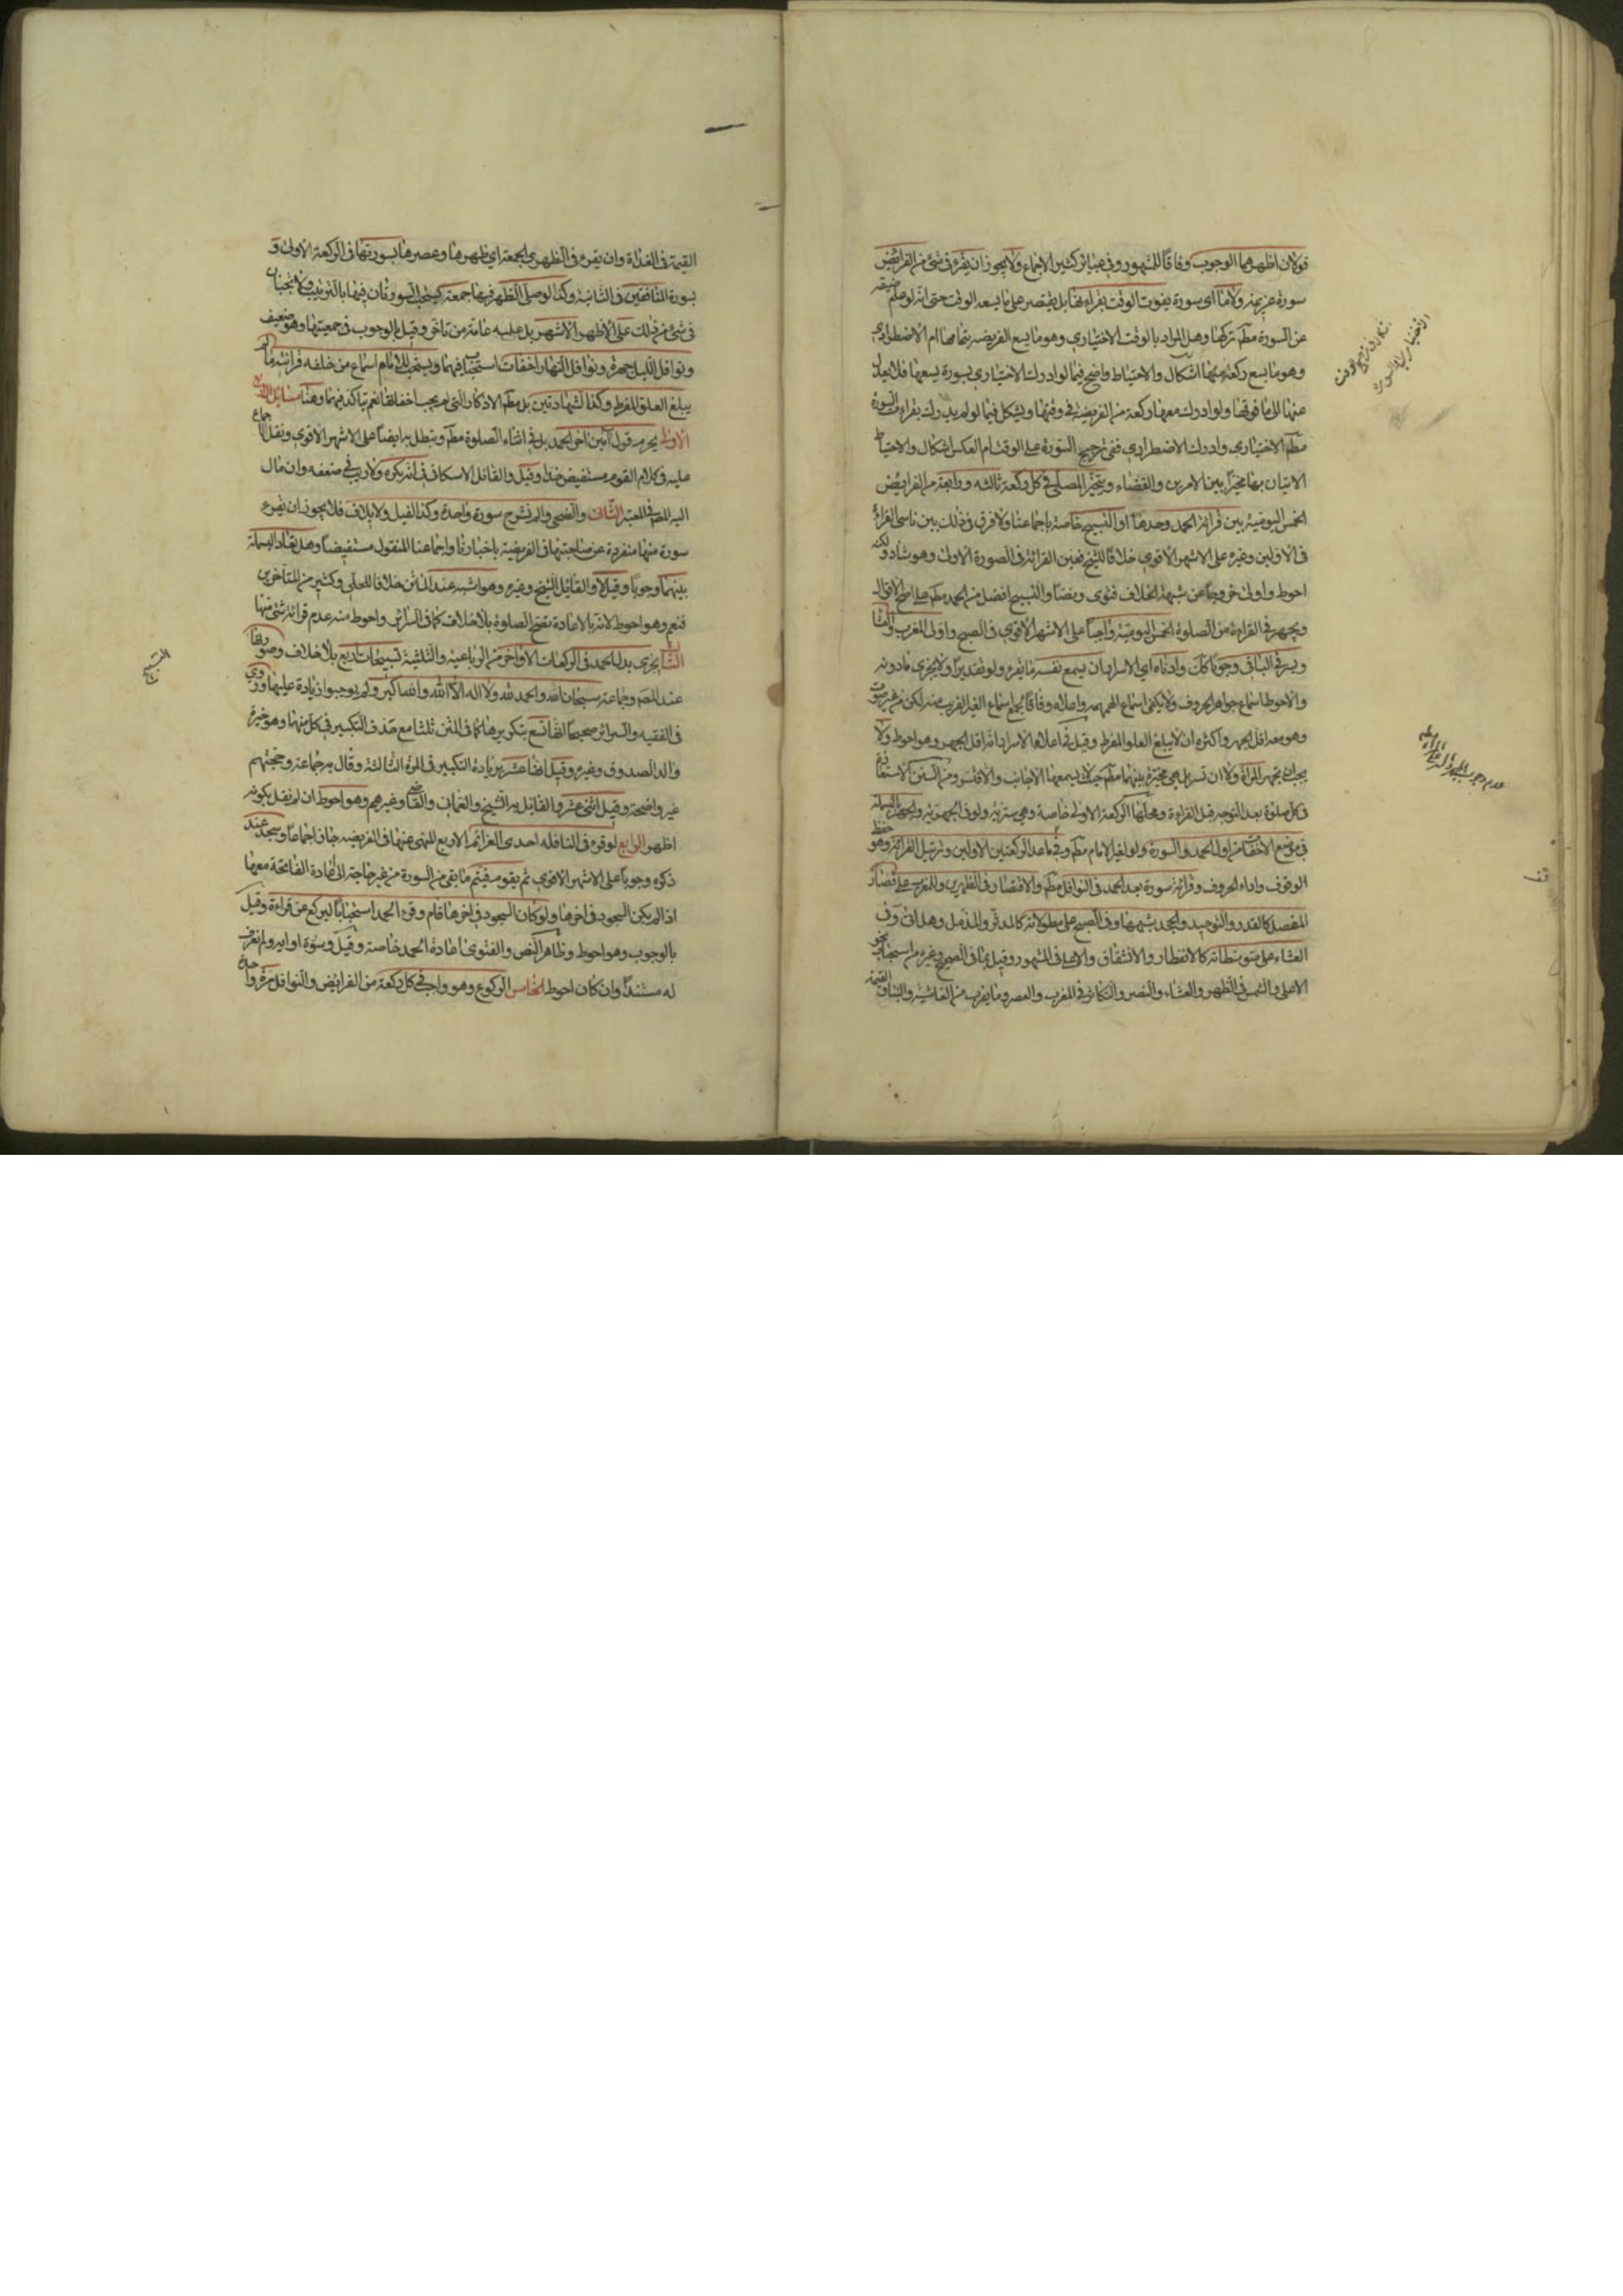 قولان اظهرهما الوجوب وفاقا للمشهور وفي عبائر كثير الاجماع ولا يجوز ان يقرء في شئ من الفرايض
سورة عزيمة ولا ما اى سورة يفوت الوقت بقراءتها بل يقتصر على ما يسعه الوقت حتى انه لو علم ضيقه
عن السورة مطم تركها وهل المراد بالوقت الاختياري وهو ما يسع الفريضه بتمامها ام الاضطراري
وهو ما يسع ركعة منها اشكال والاحتياط واضح فيما لو ادرك الاختياري بسورة يسعها فلا يعدل
عنها الى ما فوقها ولو ادرك معها ركعة من الفريضة في وقتها ويشكل فيما لو لم يدرك بقراءة السورة
مطم الاختياري وادرك الاضطراري ففي ترجيح السورة على الوقت ام العكس اشكال والاحتياط
الاتيان بها مخيرا بين الامرين والقضاء ويتخير المصلى في كل ركعة ثالثه ورابعة من الفرايض
الخمس اليومية بين قرائة الحمد وحدها او التسبيح خاصة باجماعنا ولا فرق في ذلك بين ناسى القراءة
في الاولين وغيره على الاشهر الاقوى خلافا للشيخ فعين القرائة في الصورة الاولى وهو شاذ ولكنه
احوط واولى خروجا عن شبهة الخلاف فتوى ونصا والتسبيح افضل من الحمد مطم على اصح الاقوال
ويجهر في القراءة من الصلوة الخمس اليومية واجبا على الاشهر الاقوى في الصبح واولى المغرب والعشا
ويسر في الباقى وجوبا كك وادناه اي الاسرار ان يسمع نفسه ما يقرء ولو تقديرا ولا يجزى ما دونه
والاحوط اسماع جواهر الحروف ولا يكفى اسماع الهمهمه واعلاه وفاقا لجمع اسماع الغير القريب منه لكن من غير صوت
وهو معه اقل الجهر واكثره ان لا يبلغ العلو المفرط وقيل في اعلاه الاسرار انه اقل الجهر وهو احوط ولا
يجب ان تجهر المراة ولا ان تسر بل هي مخيرة بينهما مطم حيث لا يسمعها الاجانب والا فتسر ومن السنن الاستعاذة
في كل صلوة بعد التوجه قبل القراءة ومحلها الركعة الاولى خاصة وهي سرية ولو في الجهرية والجهر بالبسملة
في موضع الاخفات من اول الحمد والسورة ولو لغير الامام مطم وفي ما عدا الركعتين الاولين وترتيل القرائة وهو حفظ
الوقوف واداء الحروف وقرائة سورة بعد الحمد في النوافل مطم والاقتصار في الظهرين والمغرب على قصار
المفصل كالقدر والتوحيد والجحد وشبهها وفي الصبح على مطولاته كالمدثر والمزمل وهل اتى وفي
العشاء على متوسطاته كالانفطار والانشقاق والاعلى في المشهور وقيل بما في الصحيح وغيره من استحباب نحو
الاعلى والشمس في الظهر والعشاء والنصر والتكاثر في المغرب والعصر وما يقرب من الغاشية والنبأ والقيمة
عدم وجوب الجهر والسر على المراة
القيمة في الغداة وان يقرء في الظهرى الجمعة اي ظهرها وعصرها بسورتها في الركعة الاولى و
بسورة المنافقين في الثانية وكذا لو صلى الظهر فيها جمعة يستحب السورتان فيها بالترتيب ولا تجبان
في شئ من ذلك على الاظهر الاشهر بل عليه عامة من تاخر وقيل بالوجوب في جمعيتها وهو ضعيف
ونوافل الليل جهرة ونوافل النهار اخفات استحبابا فيهما ويستحب للامام اسماع من خلفه قرائته ما لم
يبلغ العلو المفرط وكذا الشهادتين بل مطم الاذكار التى لم يجب اخفاتها نعم يتاكد فيهما وهنا مسائل
الاولى يحرم قول آمين آخر الحمد بل في اثناء الصلوة مطم ويبطل به ايضا على الاشهر الاقوى ونقل الاجماع
عليه في كلام القوم مستفيض جدا وقيل والقائل الاسكافى انه يكره ولا ريب في ضعفه وان مال
اليه المصم في المعتبر الثانى والضحى والم نشرح سورة واحدة وكذا الفيل ولايلاف فلا يجوز ان يقرء
سورة منها منفردة عن صاحبتها في الفريضة باخبارنا واجماعنا المنقول مستفيضا وهل تعاد البسملة
بينهما وجوبا وقيل لا والقائل الشيخ وغيره وهو اشبه عند الماتن خلافا للحلى وكثير من المتاخرين
فنعم وهو احوط لانه بالاعادة تصح الصلوة بلا خلاف كما في السرائر واحوط منه عدم قرائة شئ منها
الثالث يجزى بدل الحمد في الركعات الاواخر من الرباعية والثلثية تسبيحات اربع بلا خلاف وصورتها
عند المصم وجماعة سبحان الله والحمد لله ولا اله الا الله والله اكبر ولم يوجبوا زيادة عليها وروي
في الفقيه والسرائر صحيحا انها تسع بتكويرها كما في المتن ثلثا مع حذف التكبير في كل منها وهو خيرة
والد الصدوق وغيره وقيل انها عشر بزيادة التكبير في المرة الثالثة وقال به جماعة وحجتهم
غير واضحة وقيل اثنى عشر والقائل به الشيخ والعمانى والقاضى وغيرهم وهو احوط ان لم نقل بكونه
اظهر الرابع لو قرء في النافله احدى العزائم الاربع المنهى عنها في الفريضه جاز اجماعا وسجد عند
ذكره وجوبا على الاشهر الاقوى ثم يقوم فيتم ما بقى من السورة من غير حاجة الى اعادة الفاتحة معها
اذا لم يكن السجود في اخرها ولو كان السجود في اخرها قام وقرء الحمد استحبابا ليركع عن قراءة وقيل
بالوجوب وهو احوط وظاهر النص والفتوى اعادة الحمد خاصة وقيل وسورة او اية ولم نعرف
له مستندا وان كان احوط الخامس الركوع وهو واجب في كل ركعة من الفرايض والنوافل مرة واحدة